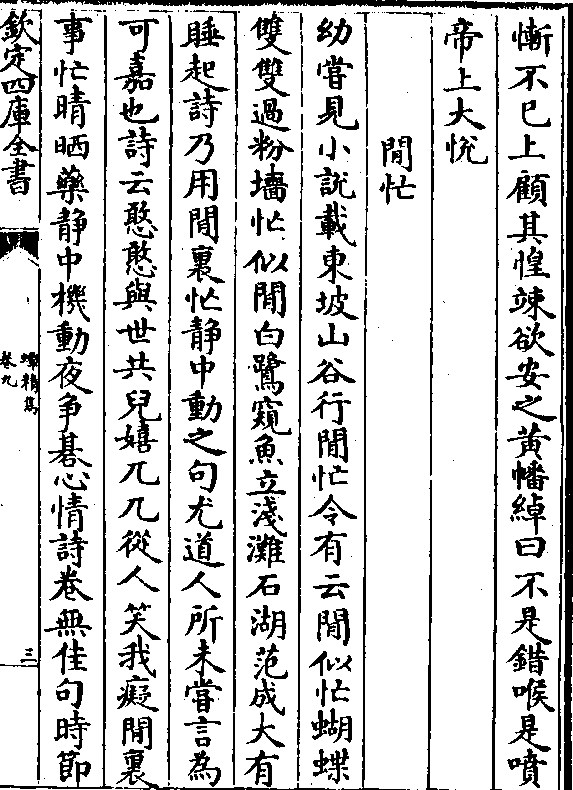 慚不已上顧其惶竦欲安之黄幡綽曰不是錯喉是噴
帝上大悅
閒忙
幼嘗見小説載東坡山谷行閒忙令有云閒似忙蝴蝶
雙雙過粉墻忙似閒白鷺窺魚立淺灘石湖范成大有
睡起詩乃用閒裏忙静中動之句尤道人所未嘗言為
可嘉也詩云憨憨與世共兒嬉兀兀從人笑我癡閒裏
事忙晴晒藥静中機動夜争碁心情詩卷無佳句時節
欽定四庫全書
蟫精雋
卷九
三